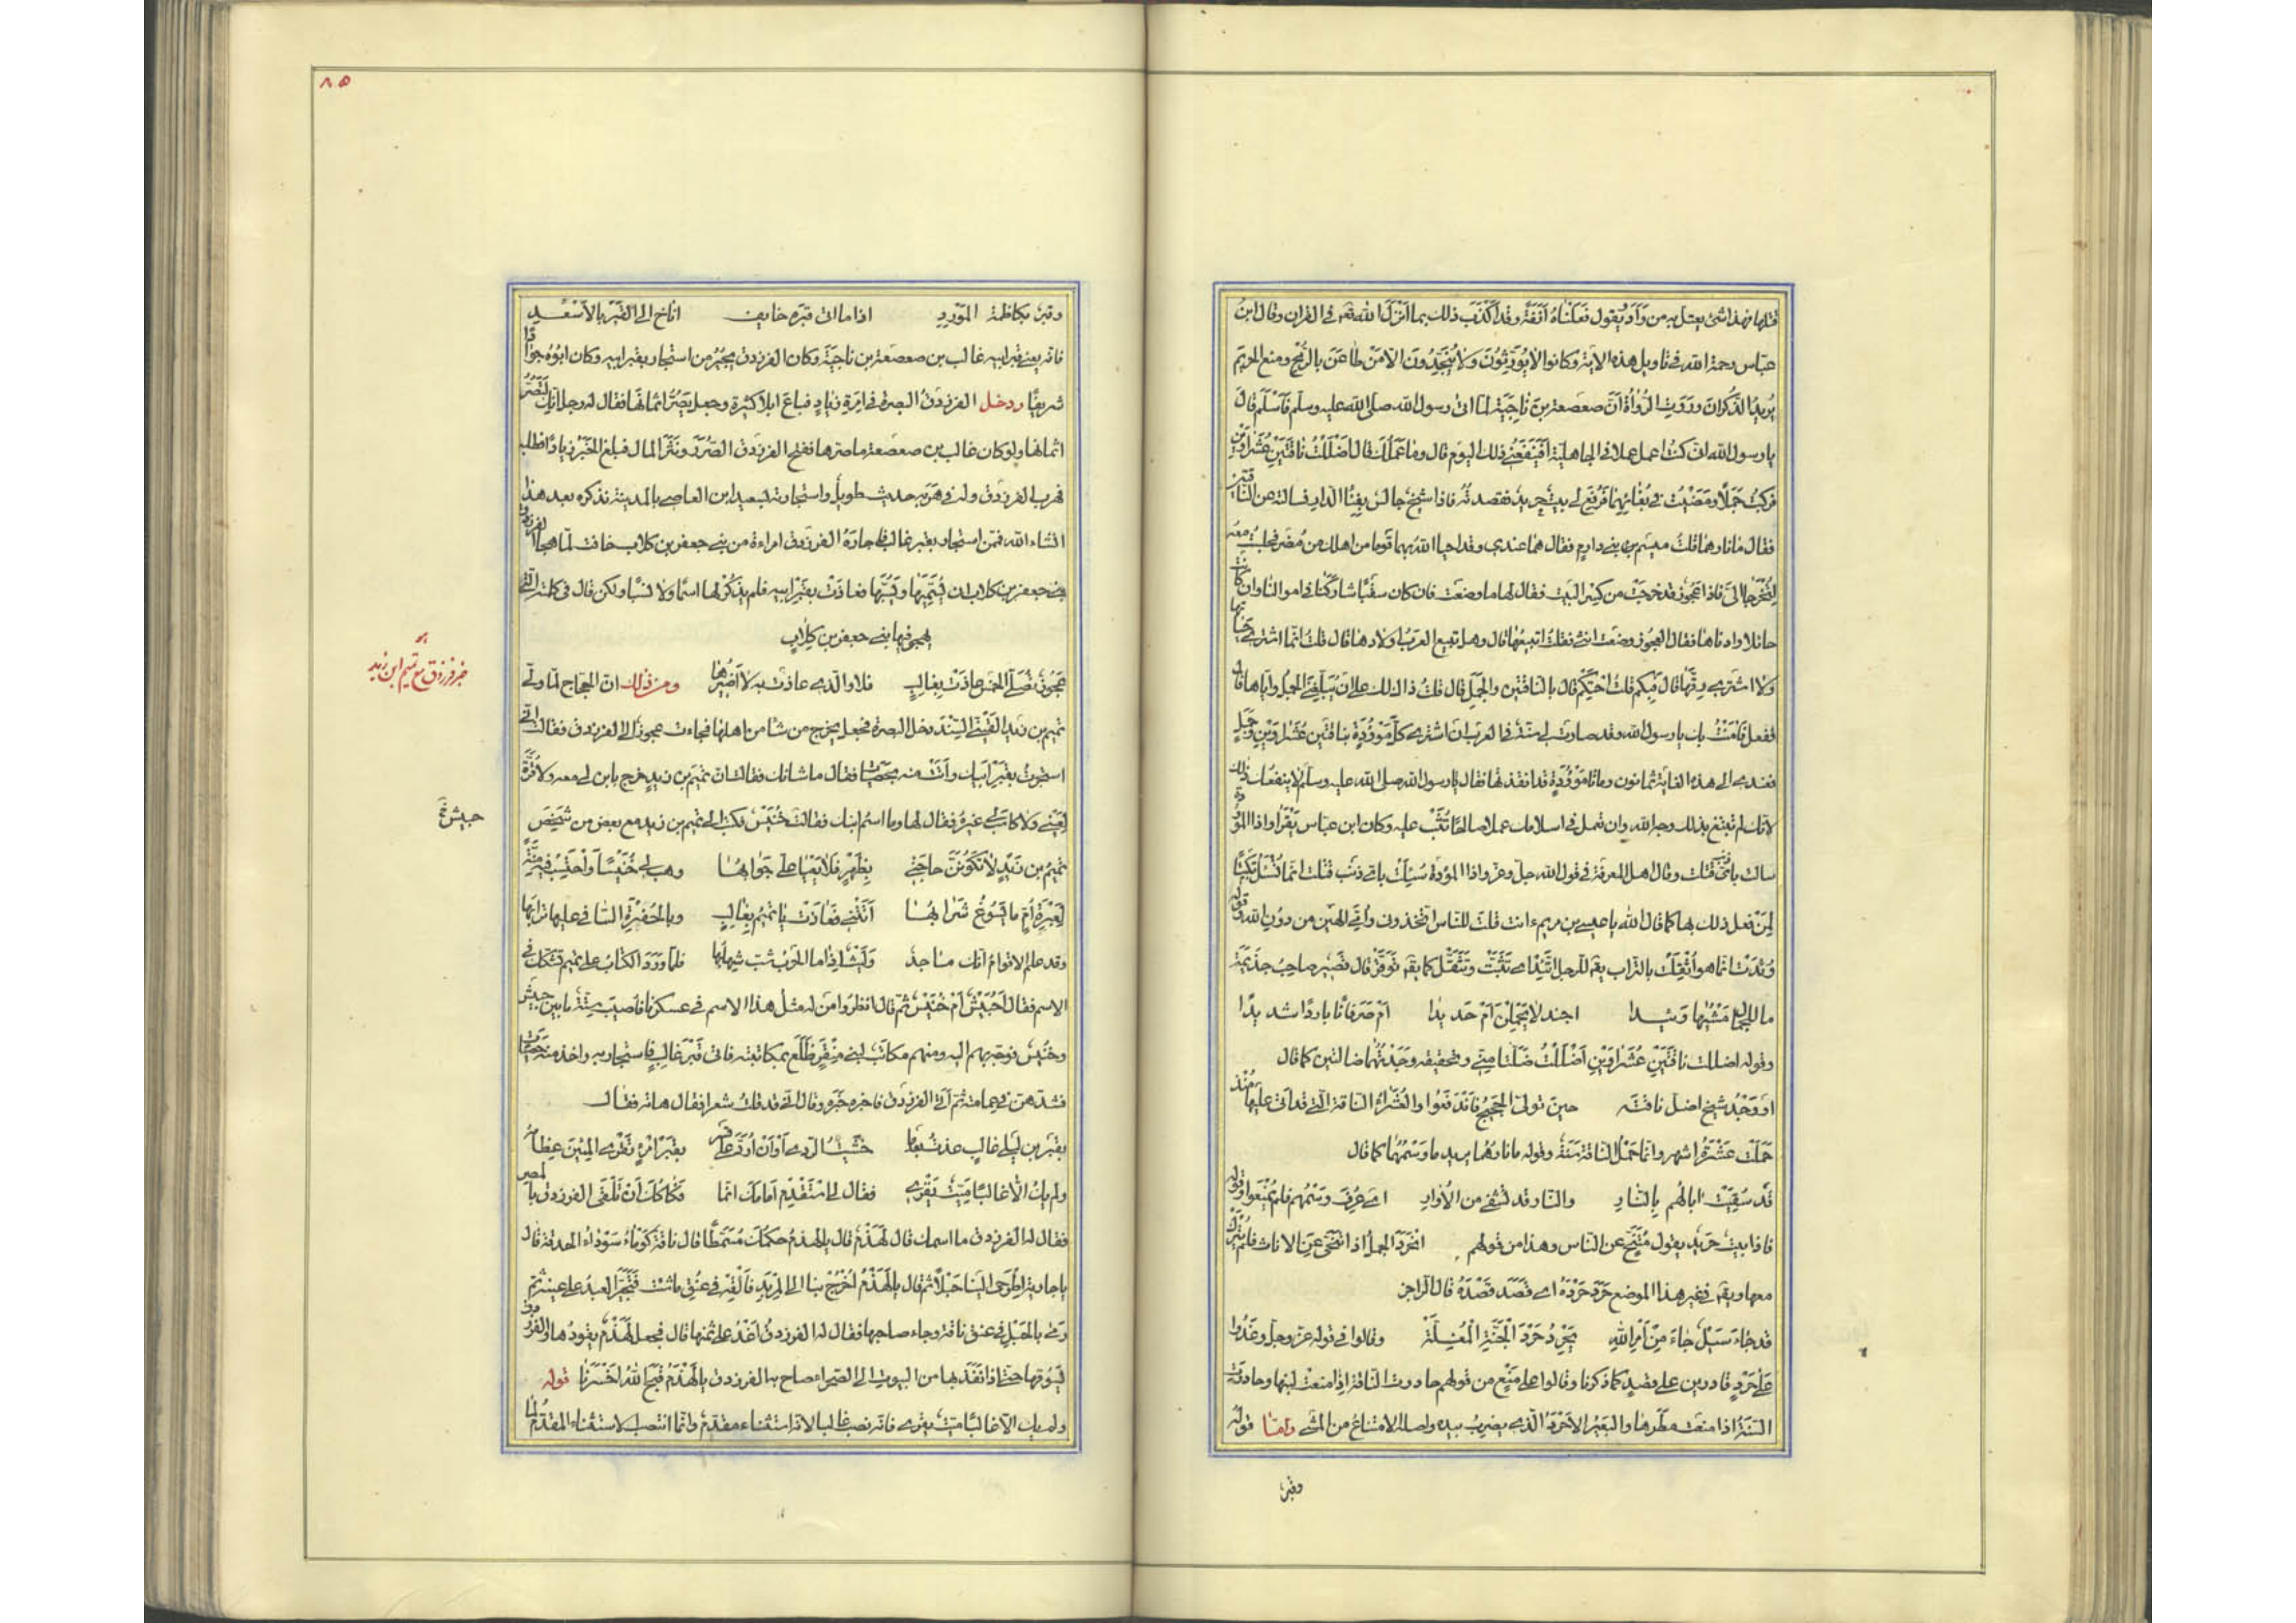 قتلها فهذا شئ يعتل به من وَأَدَ ويقول فعلناهُ أنَفَةً وقد اَكْذَبَ ذلك بما انزل الله تعه فى القران وقال ابن
عباس رحمة الله فى تاويل هذه الاية وكانوا لا يُورِّثُونَ ولا يتّخِذُونَ الّا مَنْ طاعَنَ بالرُّمْحِ ومنع الحريمَ
يُريدُ الذُّكرانَ ورَوَتِ الرُّواةُ أنَّ صعصعة بن ناجِيَة لمّا اتى رسول الله صلى الله عليه وسلم فأسْلَم قال
يا رسول الله انى كنتُ اعمل عملا فى الجاهلية أفَيَنفَعُنى ذلك اليومَ قال وما عَمَلُكَ قال اَضْلَلْتُ ناقَتَيْنِ عُشَراوَيْنِ
فركبتُ جَمَلاً ومَضَيْتُ فى بُغائِهِما فَرُفِعَ لى بيتٌ حريدٌ فقصدتُه فاذا شيخٌ جالسٌ بفِناءِ الدار فسالته عن الناقتين
فقال ما نارهما قلتُ ميسَم بنى دارِمٍ فقال هما عندى وقد احيا اللهُ بهما قوما من اهلك من مُضَر فجلستُ معه
لِتُخْرَجا الىّ فاذا عجوزٌ قد خرجَتْ من كِسْرِ البَيْتِ فقال لها ما وضعت فان كان سَقْبًا شاركَنا فى اموالنا وان كانت
حائلا وادناها فقال العجوز وضعت انثى فقلتُ اتبيعُها قال وهل تبيع العربُ اولادها قال قلتُ انما اشترى حياتها
ولا اشترى رِقَّها قال فبِكم قلتُ احْتَكِمْ قال بالناقتين والجَمَلِ قال قلتُ ذاك لك على ان يُبَلِّغَنى الجملُ وايّاها قال
ففعل فآمَنْتُ بك يا رسول الله وقد صارت لى سنّة فى العرب ان اشترى كلَّ مَوْؤُدَةٍ بناقَتَينِ عُشَراوَيْنِ وجَمَلٍ
فعندى الى هذه الغاية ثمانون ومائتا مَوْؤُدَةٍ قد انقذتها فقال يا رسول الله صلى الله عليه وسلم لا ينفعك ذلك
لانك لم تبتغِ بذلك وجه الله وان تعمل فى اسلامك عملا صالحا تُثَبْ عليه وكان ابن عباس يَقْرَأُ واذا الموؤدة
سالت باىّ ذنب قتلت وقال اهل المعرفة فى قول الله جل وعز واذا الموؤدة سُئِلَتْ باى ذنب قتلت انما تُسْئَلُ تبكيتًا
لِمَنْ فعل ذلك بها كما قال الله يا عيسى بن مريم ءانت قلت للناس اتخذونى وأمّى الهين من دون الله وقوله
وُئِدَتْ انما هو اُثقِلَتْ بالتراب يقه للرجل اتَّئِدْ اى تثَبَّتْ وتَثَقَّلْ كما يقه توقَّرْ قال قصير صاحب جذيمة
ما للجِمالِ مَشْيُها وئيدا اجندلا يَحْمِلْنَ أمْ حَديدا أمْ صَرَفانًا باردًا شديدًا
وقوله اضللت ناقَتَيْنِ عُشَراوَيْنِ اَضْلَلْتُ ضَلَّتا مِنّى وتحقيقه وَجَدْتُهُما ضالّتين كما قال
او وَجْدُ شيخٍ اضل ناقته حين تولى الحجيجُ فانْدَفَعُوا والعُشَراءُ الناقة التى قد اتى عليها مُنْذُ
حَمَلَتْ عَشَرَةُ اشهر وانما حَمْلُ الناقة سَنَةٌ وقوله ما نارهُما يريد ما وَسْمُهُما كما قال
قد سُقِيَتْ ابالُهُم بالنار والنار قد تشفى من الأُوارِ اى عُرِفَ وَسْمُهُم فلم يُمْنَعوا وقوله
فاذا بيتٌ حَريدٌ يقول مُتَنَحٍّ عن الناس وهذا من قولهم انْحَرَدَ الجملُ اذا انتحى عن الاناث فلم يَبْرُكْ
معها ويقه فى غير هذا الموضع حَرَدَ حَرْدَهُ اى قَصَدَ قَصْدَهُ قال الراجز
قد جاءَ سَيْلٌ جاءَ مِنْ أمْرِ الله يَحْرِدُ حَرْدَ الْجَنَّةِ الْمُغِلَّهْ وقالوا فى قوله عز وجل وغَدَوْا
عَلى حَرْدٍ قادرين على قصدٍ كما ذكرنا وقالوا على مَنْعٍ من قولهم حاردت الناقة اذا منعت لبنها وحاردت
السَّنَةُ اذا منعت مطرها والبعيرُ الاحْرَدُ الذى يضرِبُ بيده واصله الامتناع من المشى وامّا قوله
وقبر
٨٥
وقبرٌ بكاظمة المَوْرِدِ اذا ما اتى قبرَه خايف اناخ الى القَبْرِ بالأسْعُدِ
فانه يعنى قبر ابيه غالب بن صعصَعَة بن ناجيَةَ وكان الفرزدق يجيرُ من استجار بقبر ابيه وكان ابُوهُ جوادًا
شريفًا ودخل الفرزدقُ البصرة فى اِمْرَةِ زيادٍ فباع ابلاً كثيرة وجعل يَصُرُّ اثمانَها فقال له رجلٌ انك لَتَصُرُّ
اثمانها ولو كان غالب بن صعصعة ما صرها ففتح الفرزدق الصُّرَرَ ونَثَرَ المال فبلغ الخَبَرُ زيادًا فطلبه
فهرب الفرزدق وله فى هَرَبِه حديثٌ طويلٌ واستجارته بسعيد ابن العاصى بالمدينة نذكره بعد هذا
انشاء الله فمَن استجار بقبر غالبٍ فاجارَهُ الفرزدق امراءة من بنى جعفر بن كلاب خافت لمّا هجا الفرزدق
بنى جعفر بن كلاب ان يُسَمِّيَها ويَسُبَّها فعاذتْ بقَبْرِ ابيه فلم يذكُرْ لها اسمًا ولا نسبًا ولكن قال فى كلمته التى
يهجو فيها بنى جعفر بن كِلابٍ
عَجُوزٌ تُصَلّى الخَمْسَ عاذَتْ بغالِبٍ فلا والّذى عاذَتْ به لا أضيرُها ومن ذلك ان الحجاج لما ولّى
تميم بن زيد القَيْنِىَّ السِّنْدَ دخل البصرة فجعل يُخرج من شاء من اهلها فجاءت عجوزٌ الى الفرزدق فقالت انّى
استجرتُ بقَبْرِ ابيك وأتَتْ منه بحَصَيات فقال ما شانك فقالت ان تميمَ بن زيدٍ خرج بابنٍ لى معه ولا قُرَّةَ
لعَيْنى ولا كاسِبَ عَلَىّ غيرُهُ فقال لها وما اسمُ ابنك فقالت خُنَيْسٌ فكتب الى تميم بن زيد مع بعض من شَخَصَ
تميمُ بن زَيْدٍ لا تكونَنَّ حاجَتى بِظَهْرٍ فلا يَعْيا على جَوابُها وهب لى خُنَيْسًا واحْتَسِبْ فيه مِنّةً
لِعَبْرَةِ أُمٍّ ما يَسُوغُ شَرابُها أتَتْنى فعاذَتْ يا تميمُ بغالِبٍ وبالحُفْرَةِ السّافى عليها ترابُها
وقد علم الاقوامُ انك ماجدٌ ولَيْثٌ اذا ما الحَرْبُ شُبَّ شِهابُها فلمّا وَرَدَ الكتابُ على تميم تشَكَّكَ فى
الاسم فقال اَحُبَيْشٌ أمْ خُنَيْسٌ ثم قال انظروا مَنْ له مثلُ هذا الاسم فى عسكرنا فاُصيبَ سِتّةٌ ما بين حبيش
وخُنَيْسٍ فوجّه بهم اليه ومنهم مكاتَبٌ لبنى مِنْقَرٍ ظَلَعَ بمكاتبته فاتى قَبْرَ غالبٍ فاستجار به واخذ منه حَصَيات
فشدّهنّ فى عِمامته ثم أتى الفرزدق فاخبره خَبَرَه وقال انّى قد قلتُ شعرا فقال هاته فقال
بقبر بن لَيْلى غالبٍ عذتُ بعدما خشيتُ الرّدى أوْ أنْ أُرَدَّ على قَسْرِ بقَبْرِ امْرِءٍ تَقْرِى المِئينَ عِظامُه
ولم يكُ الا غالبًا ميّتٌ يَقْرِى فقال لى استَقْدِمْ امامَك انما فِكاكُكَ أنْ تَلْقى الفرزدق بالمصر
فقال له الفرزدق ما اسمك قال لَهْذَمٌ قال يا لهذمُ حكمُكَ مُسَمَّطًا قال ناقةٌ كَوْماءُ سَوْداءُ الحدقة قال
يا جاريةُ اطْرَحى الينا حَبْلاً ثم قال يا لَهْذَمُ اُخْرُجْ بنا الى المِرْبَدِ فألْقِه فى عُنُقِ ما شئت فتَخَيَّرَ العبدُ على عينه ثم
رمى بالحَبْلِ فى عنق ناقة وجاء صاحبها فقال له الفرزدقُ اُغْدُ علىّ ثمنها قال فجعل لَهْذَمٌ يقودُها والفرزدق
يَسُوقها حتى اذا نَفَذَ بها من البيوت الى الصحراء صاح به الفرزدق يا لَهْذَمُ قَبَحَ اللهُ اَخْسَرَنا قوله
ولم يك الا غالبًا ميت يقرى فانه نصب غالبا لانه استثناء مقدّم وانما انتصب الاستثناء المقدّم لما
خبر فرزدق مع تميم ابن زيد
حبيش خ